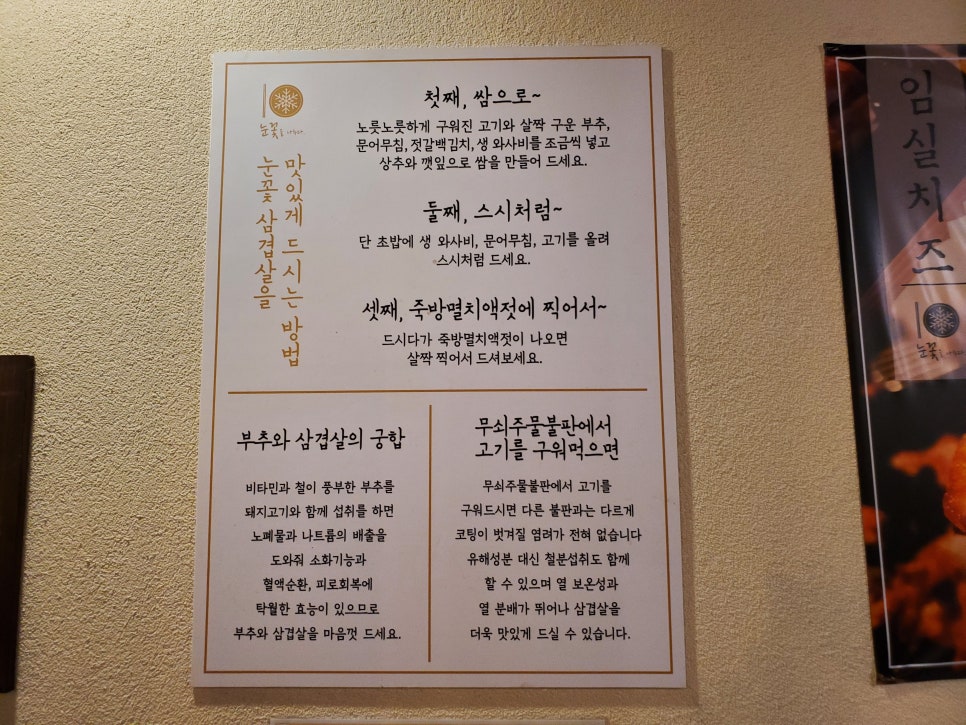 눈꽃
눈꽃 삼겹살을
맛있게 드시는 방법
첫째, 쌈으로~
노릇노릇하게 구워진 고기와 살짝 구운 부추,
문어무침, 젓갈백김치, 생 와사비를 조금씩 넣고
상추와 깻잎으로 쌈을 만들어 드세요.
둘째, 스시처럼~
단 초밥에 생 와사비, 문어무침, 고기를 올려
스시처럼 드세요.
셋째, 죽방멸치액젓에 찍어서~
드시다가 죽방멸치액젓이 나오면
살짝 찍어서 드셔보세요.
부추와 삼겹살의 궁합
비타민과 철이 풍부한 부추를
돼지고기와 함께 섭취를 하면
노폐물과 나트륨의 배출을
도와줘 소화기능과
혈액순환, 피로회복에
탁월한 효능이 있으므로
부추와 삼겹살을 마음껏 드세요.
무쇠주물불판에서
고기를 구워먹으면
무쇠주물불판에서 고기를
구워드시면 다른 불판과는 다르게
코팅이 벗겨질 염려가 전혀 없습니다
유해성분 대신 철분섭취도 함께
할 수 있으며 열 보온성과
열 분배가 뛰어나 삼겹살을
더욱 맛있게 드실 수 있습니다.
임실치즈
눈꽃